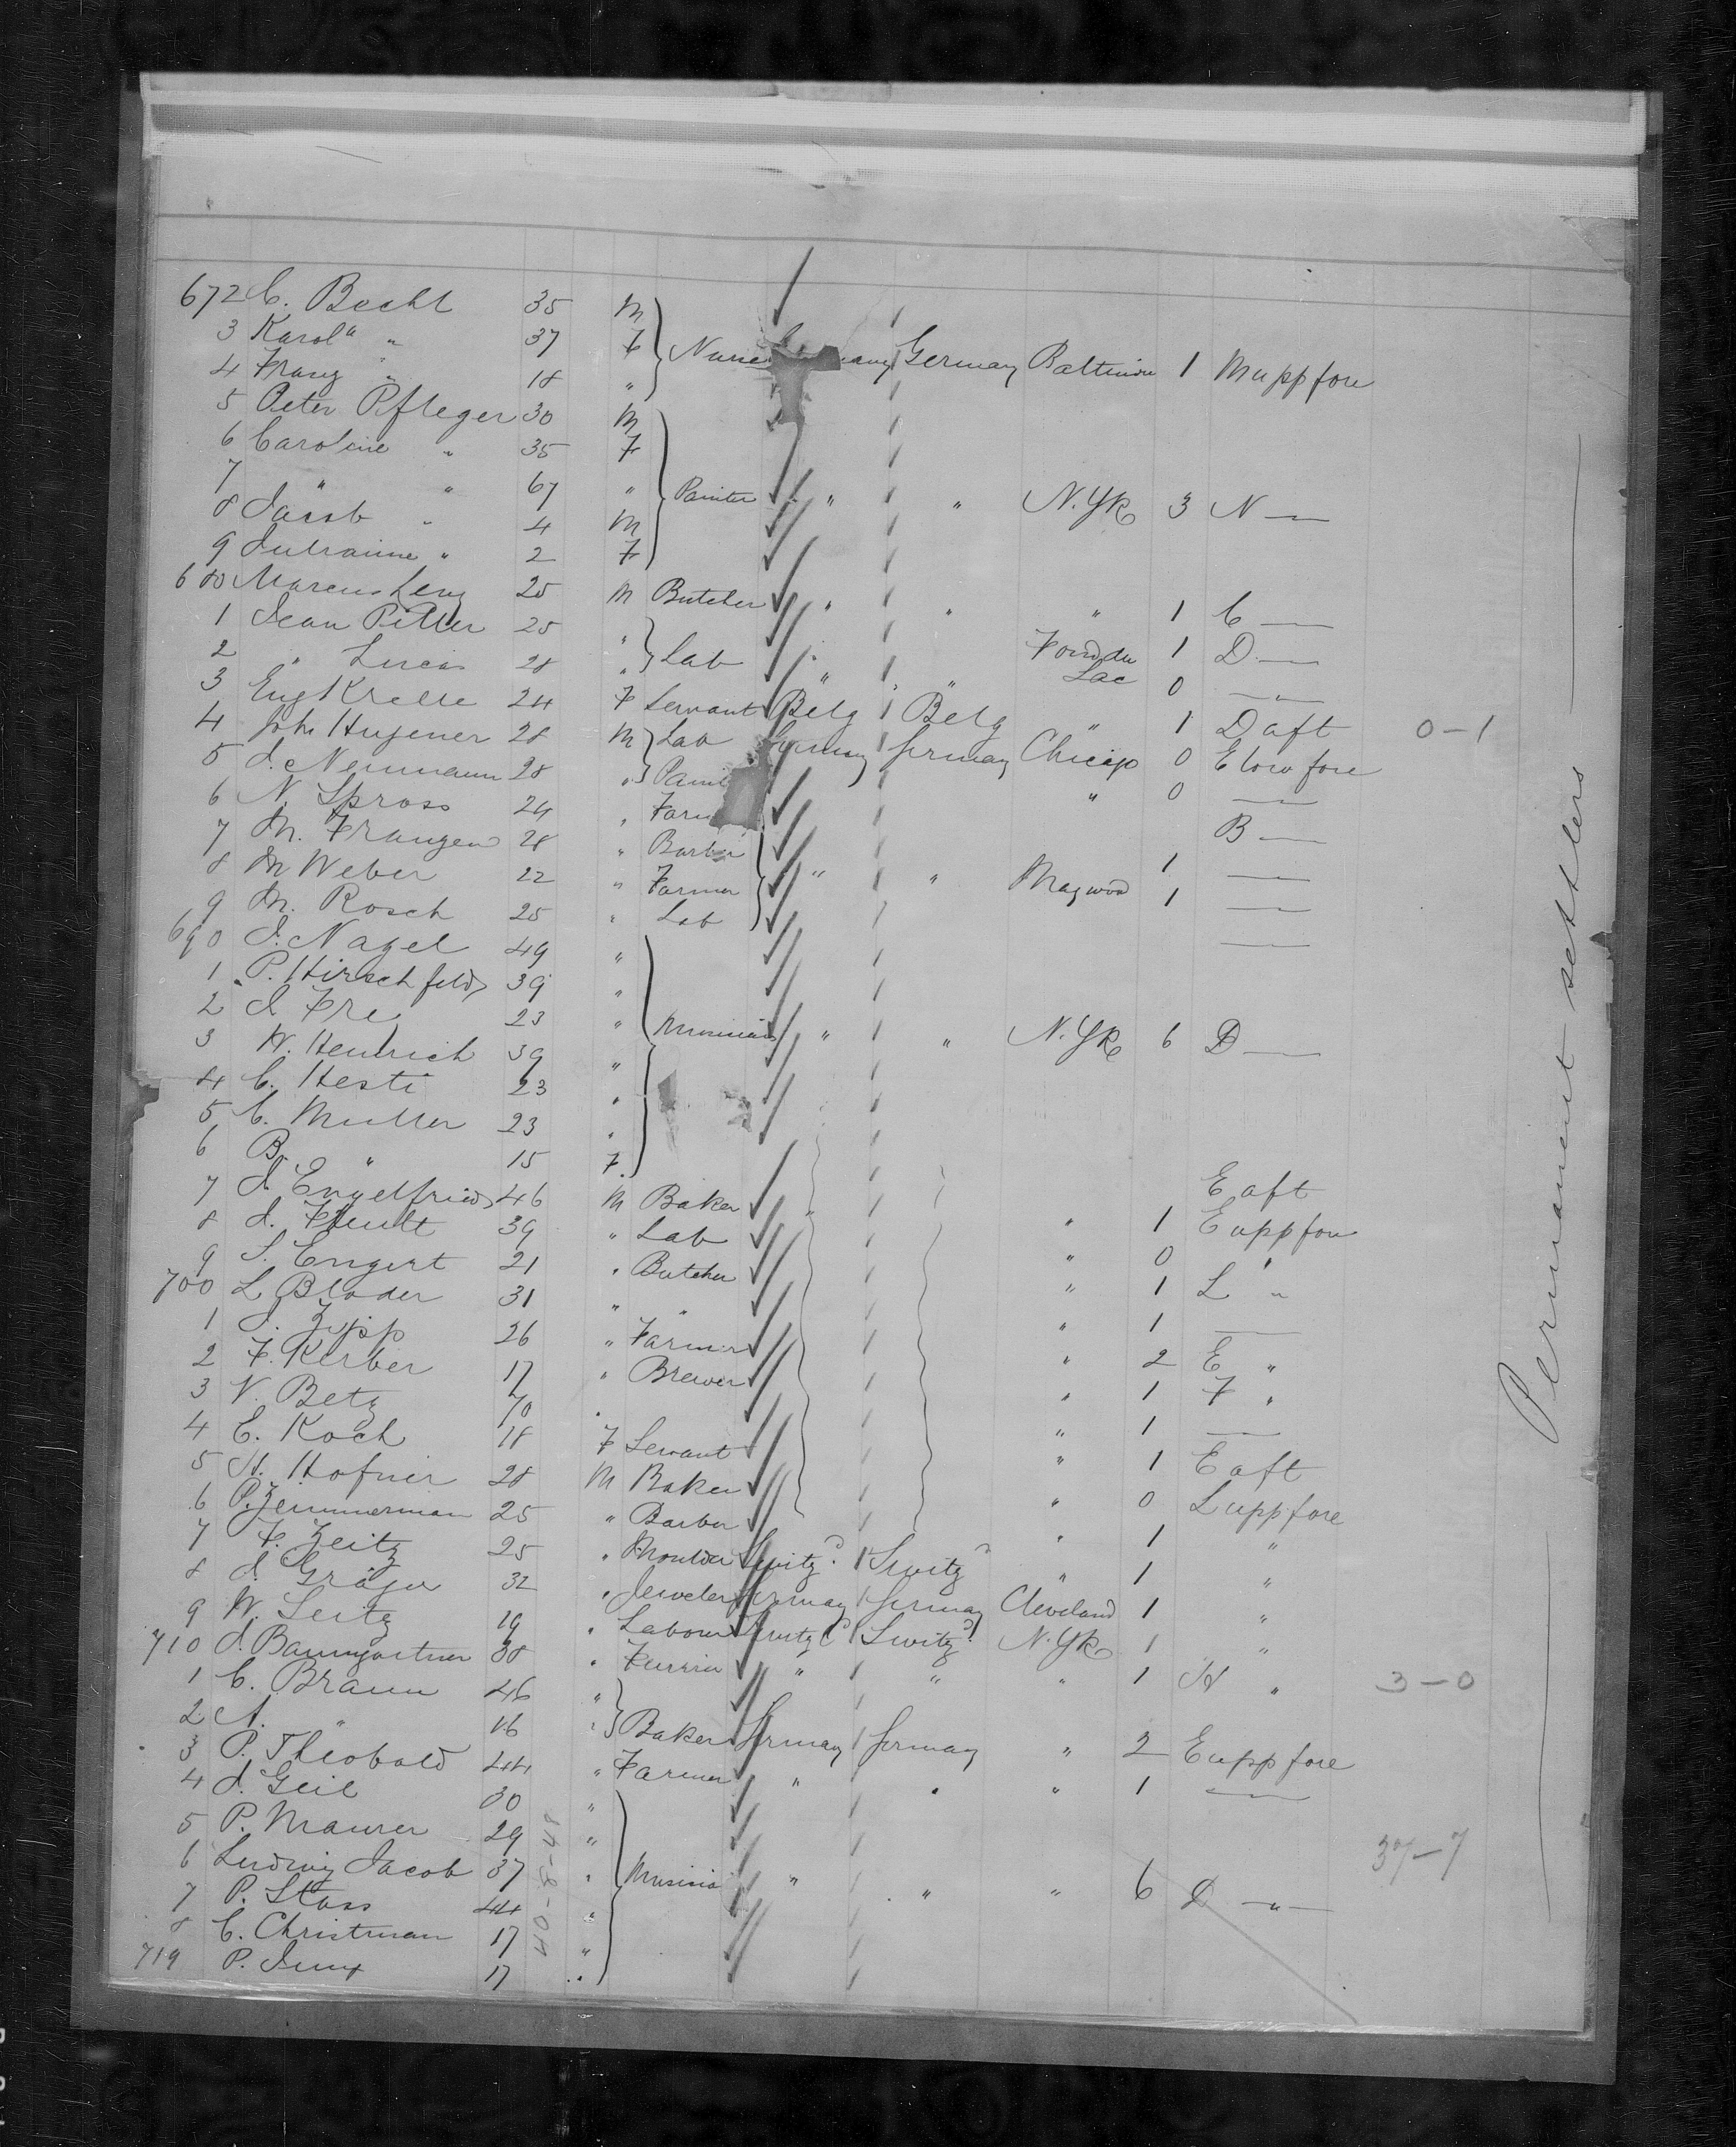 672 C. Becht 35 M
3 Karola " 37 F Germany Baltimore 1 M upp fore
4 Franz " 18 "
5 Peter Pfleger 30 M
6 Caroline " 35 F
7 " " 67 " Painter " " N. Yk 3 N —
8 Jacob " 4 M
9 " 2 F
680 Marcus Leny 25 M Butcher " " " 1 C —
1 Jean Pitter 25 " Lab " " Fond du Lac 1 D —
2 " Lucas 28 " 0 — " —
3 Eug Krelle 24 F Servant Belg Belg " 1 D aft 0-1
4 Joh Hugener 28 M Lab Germany Germany Chicago 0 E low fore
5 J. Neumann 28 " " 0 —
6 N. Spross 24 " B —
7 M. Frangen 28 " Barber 1
8 M Weber 22 " Farmer " " Maywood 1 —
9 M. Rosch 25 " Lab —
690 J. Nagel 49 " —
1 P. Hirschfeld 39 "
2 J. Frey 23 "
3 W. Hendrich 39 " Musician " " N. Yk 6 D —
4 C. Hesti 23 "
5 C. Muller 23 "
6 B. " 15 F.
7 J. Engelfried 46 M Baker E aft
8 J. 39 " Lab " 1 E upp fore
9 S. Engert 21 " Butcher " 0 "
700 L Blader 31 " " " 1 L "
1 J. Zipp 26 " Farmer " 1 —
2 F. Kerber 17 " Brewer " 2 E "
3 V. Betz 70 " " 1 F "
4 C. Koch 18 F Servant " 1 —
5 H. Hofner 28 M Baker " 1 E aft
6 P. Zimmerman 25 " Barber " 0 L upp fore
7 F. Zeitz 25 " Moulder Switz Switz " 1 "
8 J. Gräfer 32 " Jeweler Germany Germany Cleveland 1 "
9 W. Seitz 19 " Laborer Switz Switz N. Yk 1 "
710 J. Baumgartner 38 " Furrier " " " 1 H " 3-0
1 C. Braun 46 "
2 A. " 16 " Baker Germany Germany " 2 E upp fore
3 P. Theobald 44 " Farmer " " " 1 —
4 J. Geil 30 "
5 P. Maurer 29 " 37-7
6 Ludwig Jacob 37 " Musician " " " 6 D — " —
7 P. Stass 44 "
8 C. Christman 17 "
719 P. 17 "
Permanent settlers